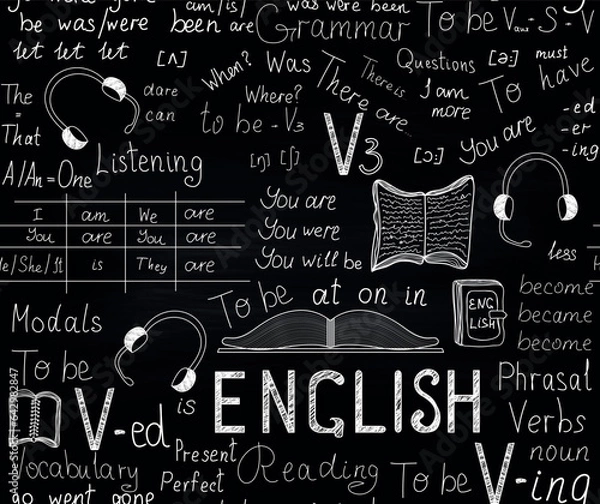 was were been
be was/were been are Grammar To be Vaux - S - V
let let let [ʌ] When? Was There is Questions [ə:] must
The = That
dare
can
Where? There are...
I am
more
To have
to be - V3
V3
You are
-ed
-er
-ing
Listening
[ŋ] [ʃ]
[ɔ:]
A/An = One
I am We are
You are You are
He/She/It is They are
You are
You were
You will be
less
To be at on in
ENG
LISH
become
became
become
Modals
To be
is
ENGLISH
Phrasal
Verbs
noun
V-ed
Present
Perfect
Vocabulary
Reading
To be
V-ing
go went gone
Adobe Stock